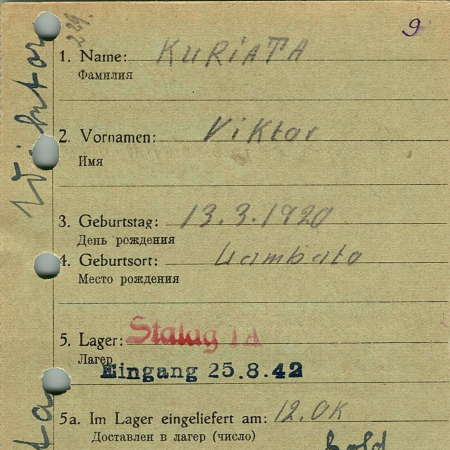 229.
9
1. Name: KURIATA
Фамилия
2. Vornamen: Viktor
Имя
3. Geburtstag: 13.3.1920
День рождения
4. Geburtsort:
Место рождения
5. Lager: Stalag IA
Лагер
Eingang 25.8.42
5a. Im Lager eingeliefert am: 12. OK
Доставлен в лагер (число)
Viktor